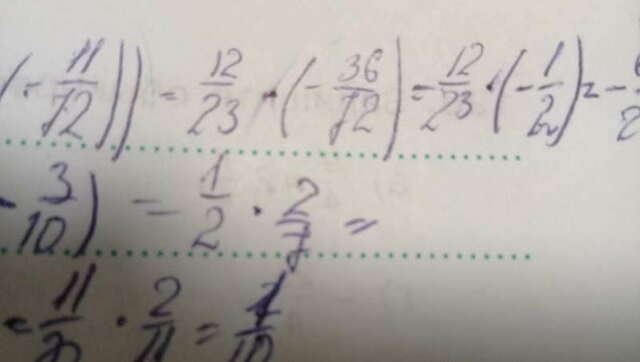 (-11/72)) = 12/23 · (-36/72) = 12/23 · (-1/2) = -
3/10) = -1/2 · 2/7 =
= 11/ · 2/11 = 1/10